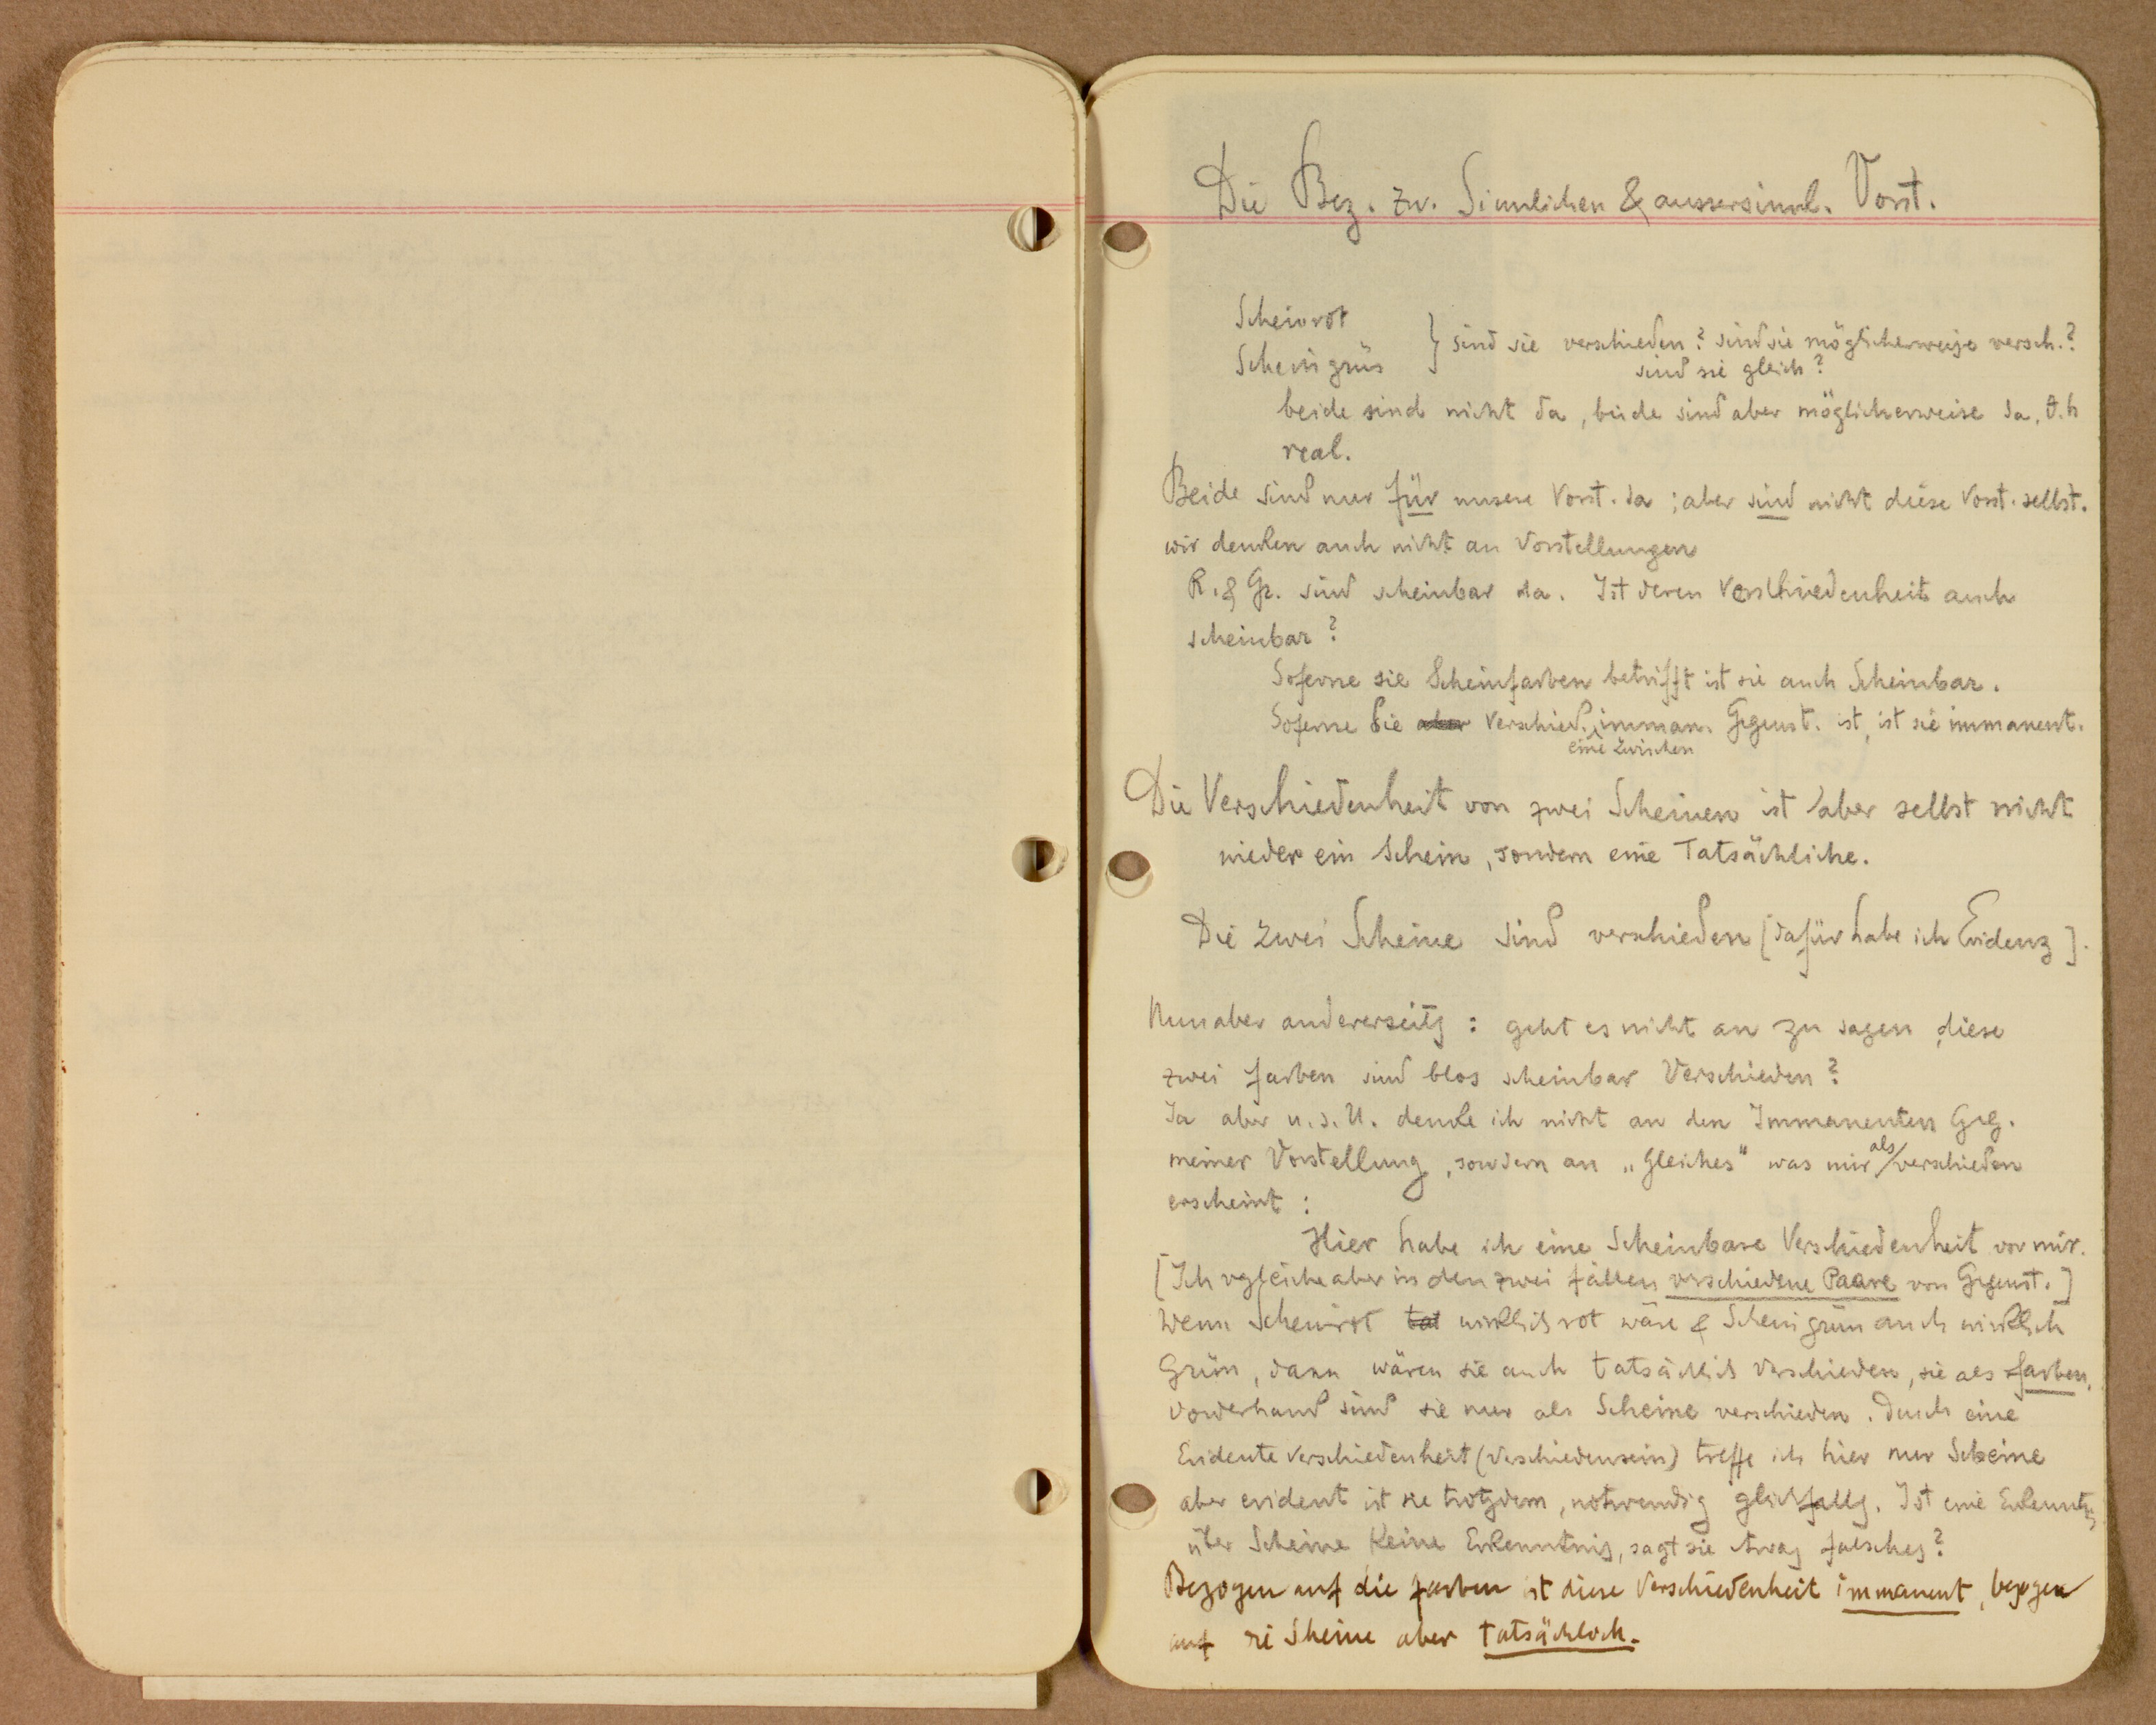 Die Bez. zw. Sinnlichen & aussersinnl. Vorst.
Scheinrot
Scheingrün } sind sie verschieden? sind sie möglicherweise versch.?
sind sie gleich?
beide sind nicht da, beide sind aber möglicherweise da, d.h
real.
Beide sind nur für unsere Vorst. da ; aber sind nicht diese Vorst. selbst.
wir denken auch nicht an Vorstellungen
R. & Gr. sind scheinbar da. Ist deren Verschiedenheit auch
scheinbar?
Soferne sie Scheinfarben betrifft ist sie auch Scheinbar.
Soferne sie aber Verschied. imman. Gegenst. ist, ist sie immanent.
eine zwischen
Die Verschiedenheit von zwei Scheinen ist aber selbst nicht
wieder ein Schein, sondern eine Tatsächliche.
Die zwei Scheine sind verschieden [dafür habe ich Evidenz].
Nun aber andererseits : geht es nicht an zu sagen, diese
zwei Farben sind blos scheinbar Verschieden?
Ja aber u. s. U. denke ich nicht an den Immanenten Geg.
meiner Vorstellung, sondern an „Gleiches" was mir als verschieden
erscheint :
Hier habe ich eine Scheinbare Verschiedenheit vor mir.
[Ich vgleiche aber in den zwei Fällen verschiedene Paare von Gegenst.]
Wenn Scheinrot tat wirklich rot wäre & Scheingrün auch wirklich
Grün, dann wären sie auch tatsächlich verschieden, sie als Farben,
vorderhand sind sie nur als Scheine verschieden. Durch eine
Evidente Verschiedenheit (Verschiedensein) treffe ich hier nur Scheine
aber evident ist sie trotzdem, notwendig gleichfalls. Ist eine Erkenntnis
über Scheine keine Erkenntnis, sagt sie etwas falsches?
Bezogen auf die Farben ist diese Verschiedenheit immanent, bezogen
auf die Scheine aber tatsächlich.